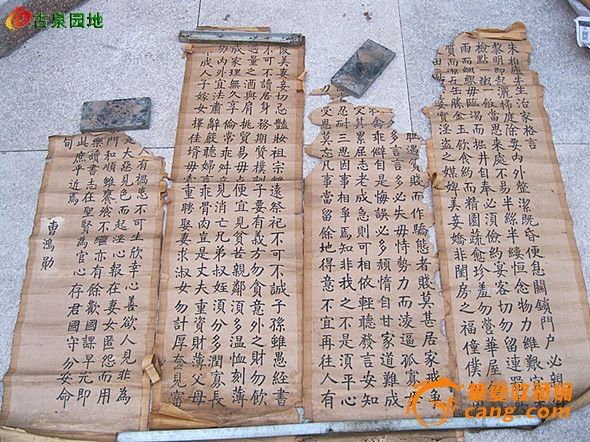 古泉园地
朱柏廬先生治家格言
黎明即起灑掃庭除要內外整潔既昏便息關鎖門户必親
檢點一粥一飯當思來處不易半絲半縷恒念物力維艱
雨而綢繆毋臨渴而掘井自奉必須儉約宴客切勿留連器
質而潔瓦缶勝金玉飲食約而精園蔬愈珍羞勿營華屋
實淫盜之媒婢美妾嬌非閨房之福僮僕
俊美妻妾切忌艷妝祖宗雖遠祭祀不可不誠子孫雖愚經書
不可不讀居身務期質樸訓子要有義方勿貪意外之財勿飲
過量之酒與肩挑貿易毋占便宜見貧苦親鄰須多溫恤刻薄
成家理無久享倫常乖舛立見消亡兄弟叔姪須分多潤寡長
幼內外宜法肅辭嚴聽婦言乖骨肉豈是丈夫重資財薄父母
不成人子嫁女擇佳壻毋索重聘娶媳求淑女勿計厚奩見富
恥遇貧賤而作驕態者賤莫甚居家戒爭
多言言多必失毋恃勢力而凌逼孤寡
乖僻自是悔誤必多頹惰自甘家道難成
又其累屈志老成急則可相依輕聽發言安知
忍耐三思因事相爭焉知非我之不是須平心
受恩莫忘凡事當留餘地得意不宜再往人有
有禍患不可生欣幸心善欲人見非為
是大惡見色而起淫心報在妻女匿怨而用
門和順雖饔飧不繼亦有餘歡國課早完即
樂讀書志在聖賢為官心存君國守分安命
此庶乎近焉
曹鴻勛
cang.com